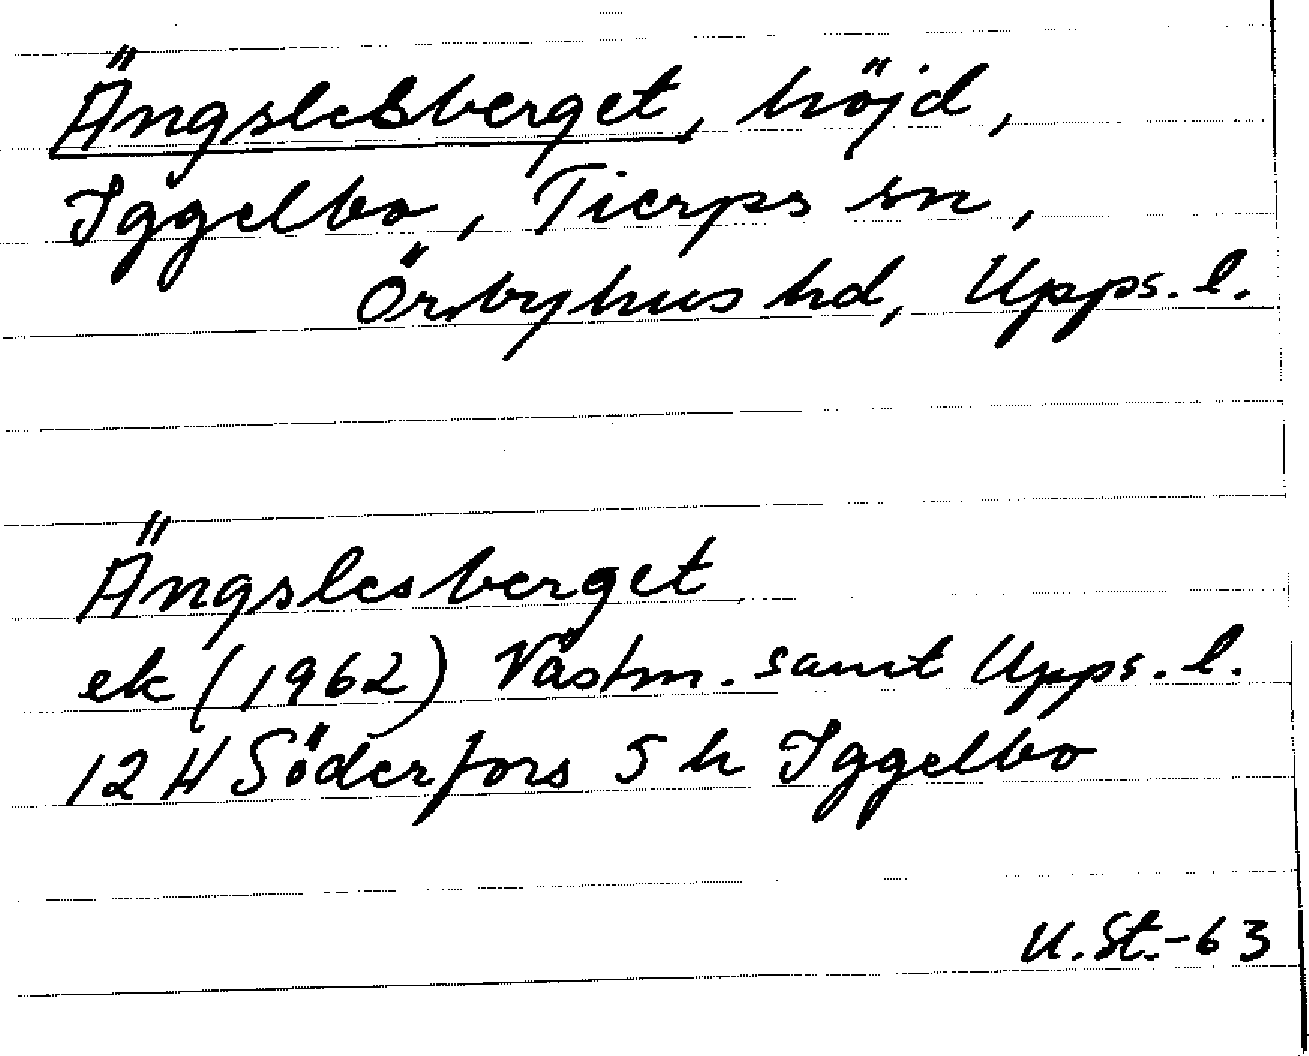 Ängslesberget, höjd,
Iggelbo, Tierps sn,
Örbyhus hd, Upps. l.
Ängslesberget
ek (1962) Västm. samt Upps. l.
12 H Söderfors 5 h Iggelbo
U. St. -63